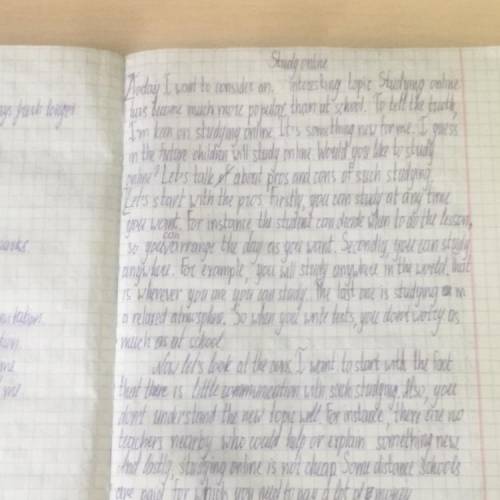 Study online
Today I want to consider an interesting topic Studying online
has become much more popular than at school. To tell the truth,
ays park longer
I'm keen on studying online. It's something new for me. I guess
in the future children will study online. Would you like to study
online? Let's talk about pros and cons of such studying.
Let's start with the pros. Firstly, you can study at any time
you want. For instance the student can decide when to do the lesson,
so you can arrange the day as you want. Secondly, you can study
anywhere. For example, you will study anywhere in the world, that
is wherever you are you can study. The last one is studying in
a relaxed atmosphere. So when you write tests, you don't worry as
much as at school.
Now let's look at the cons. I want to start with the fact
that there is little communication with such studying. Also, you
don't understand the new topic well. For instance, there are no
teachers nearby who could help or explain something new.
And lastly, studying online is not cheap. Some distance schools
are paid, for which you need to pay a lot of money.